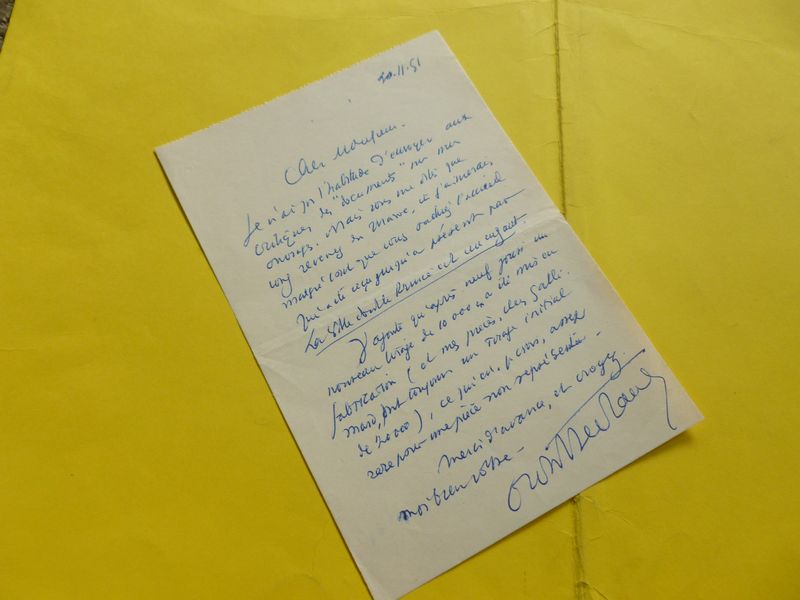 20.11.51
Cher Monsieur.
Je n'ai pas l'habitude d'envoyer aux
critiques des "documents" sur mes
ouvrages. Mais vous me dites que
vous revenez du Maroc, et j'aimerais
malgré tout que vous sachiez l'accueil
qui a été reçu jusqu'à présent par
La Ville dont le Prince est un enfant
J'ajoute qu'après neuf jours un
nouveau tirage de 10 000 ex a été mis en
fabrication (et mes pièces, chez Galli-
mard, ont toujours un tirage initial
de 20 000), ce qui est, je crois, assez
rare pour une pièce non représentée.
Merci d'avance, et croyez
moi bien vôtre.
Montherlant